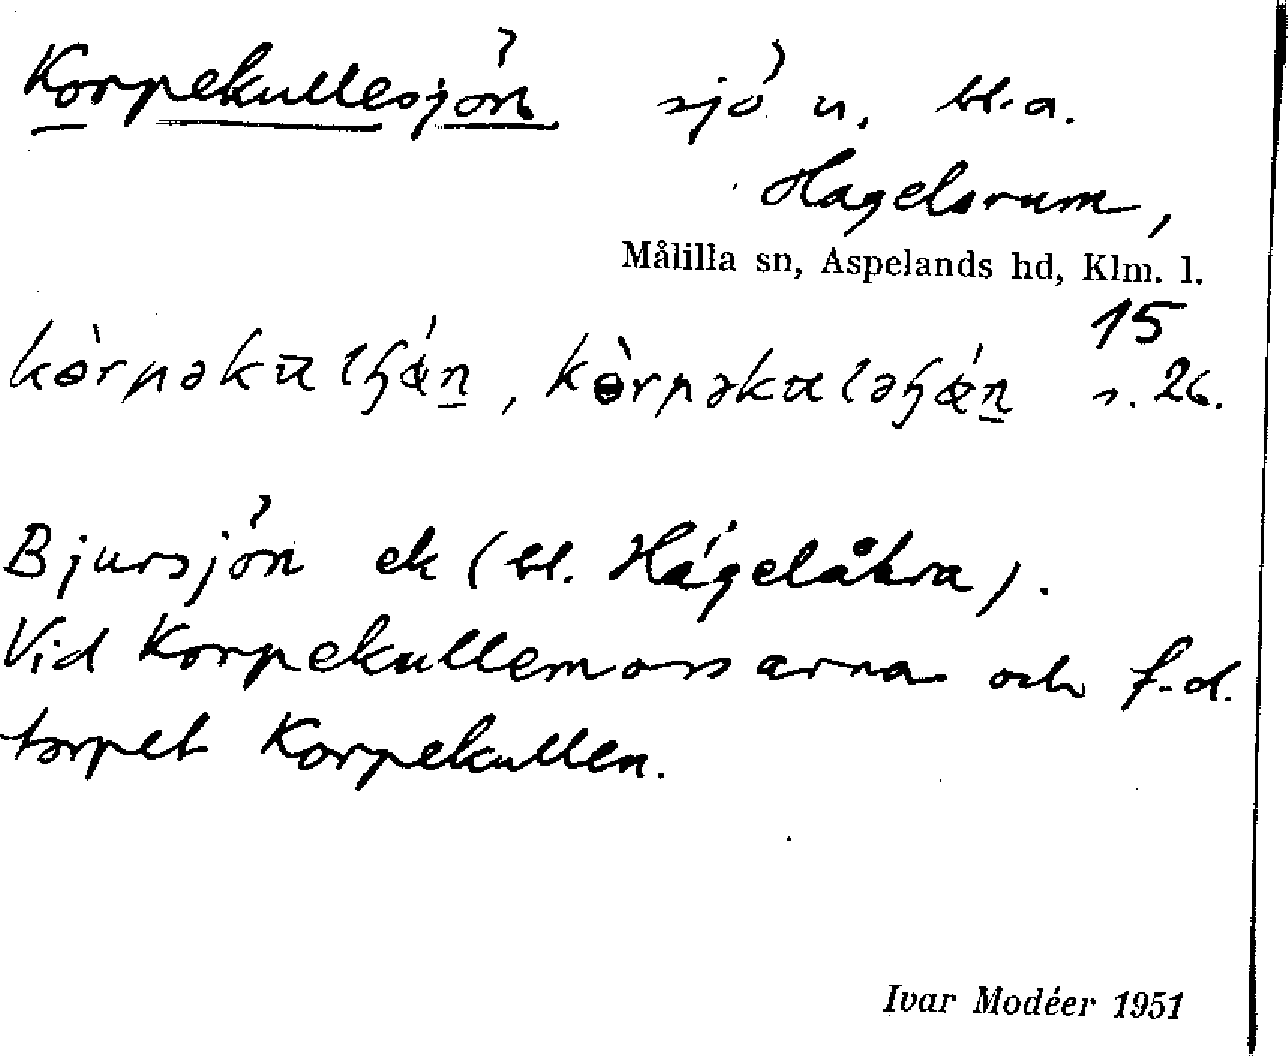 Korpekullesjön sjö u. bl.a.
Hagelsrum,
Målilla sn, Aspelands hd, Klm. l.
15
s. 26.
Bjursjön ek (bl. Hagelåkra).
Vid Korpekullemossarna och f.d.
torpet Korpekullen.
Ivar Modéer 1951